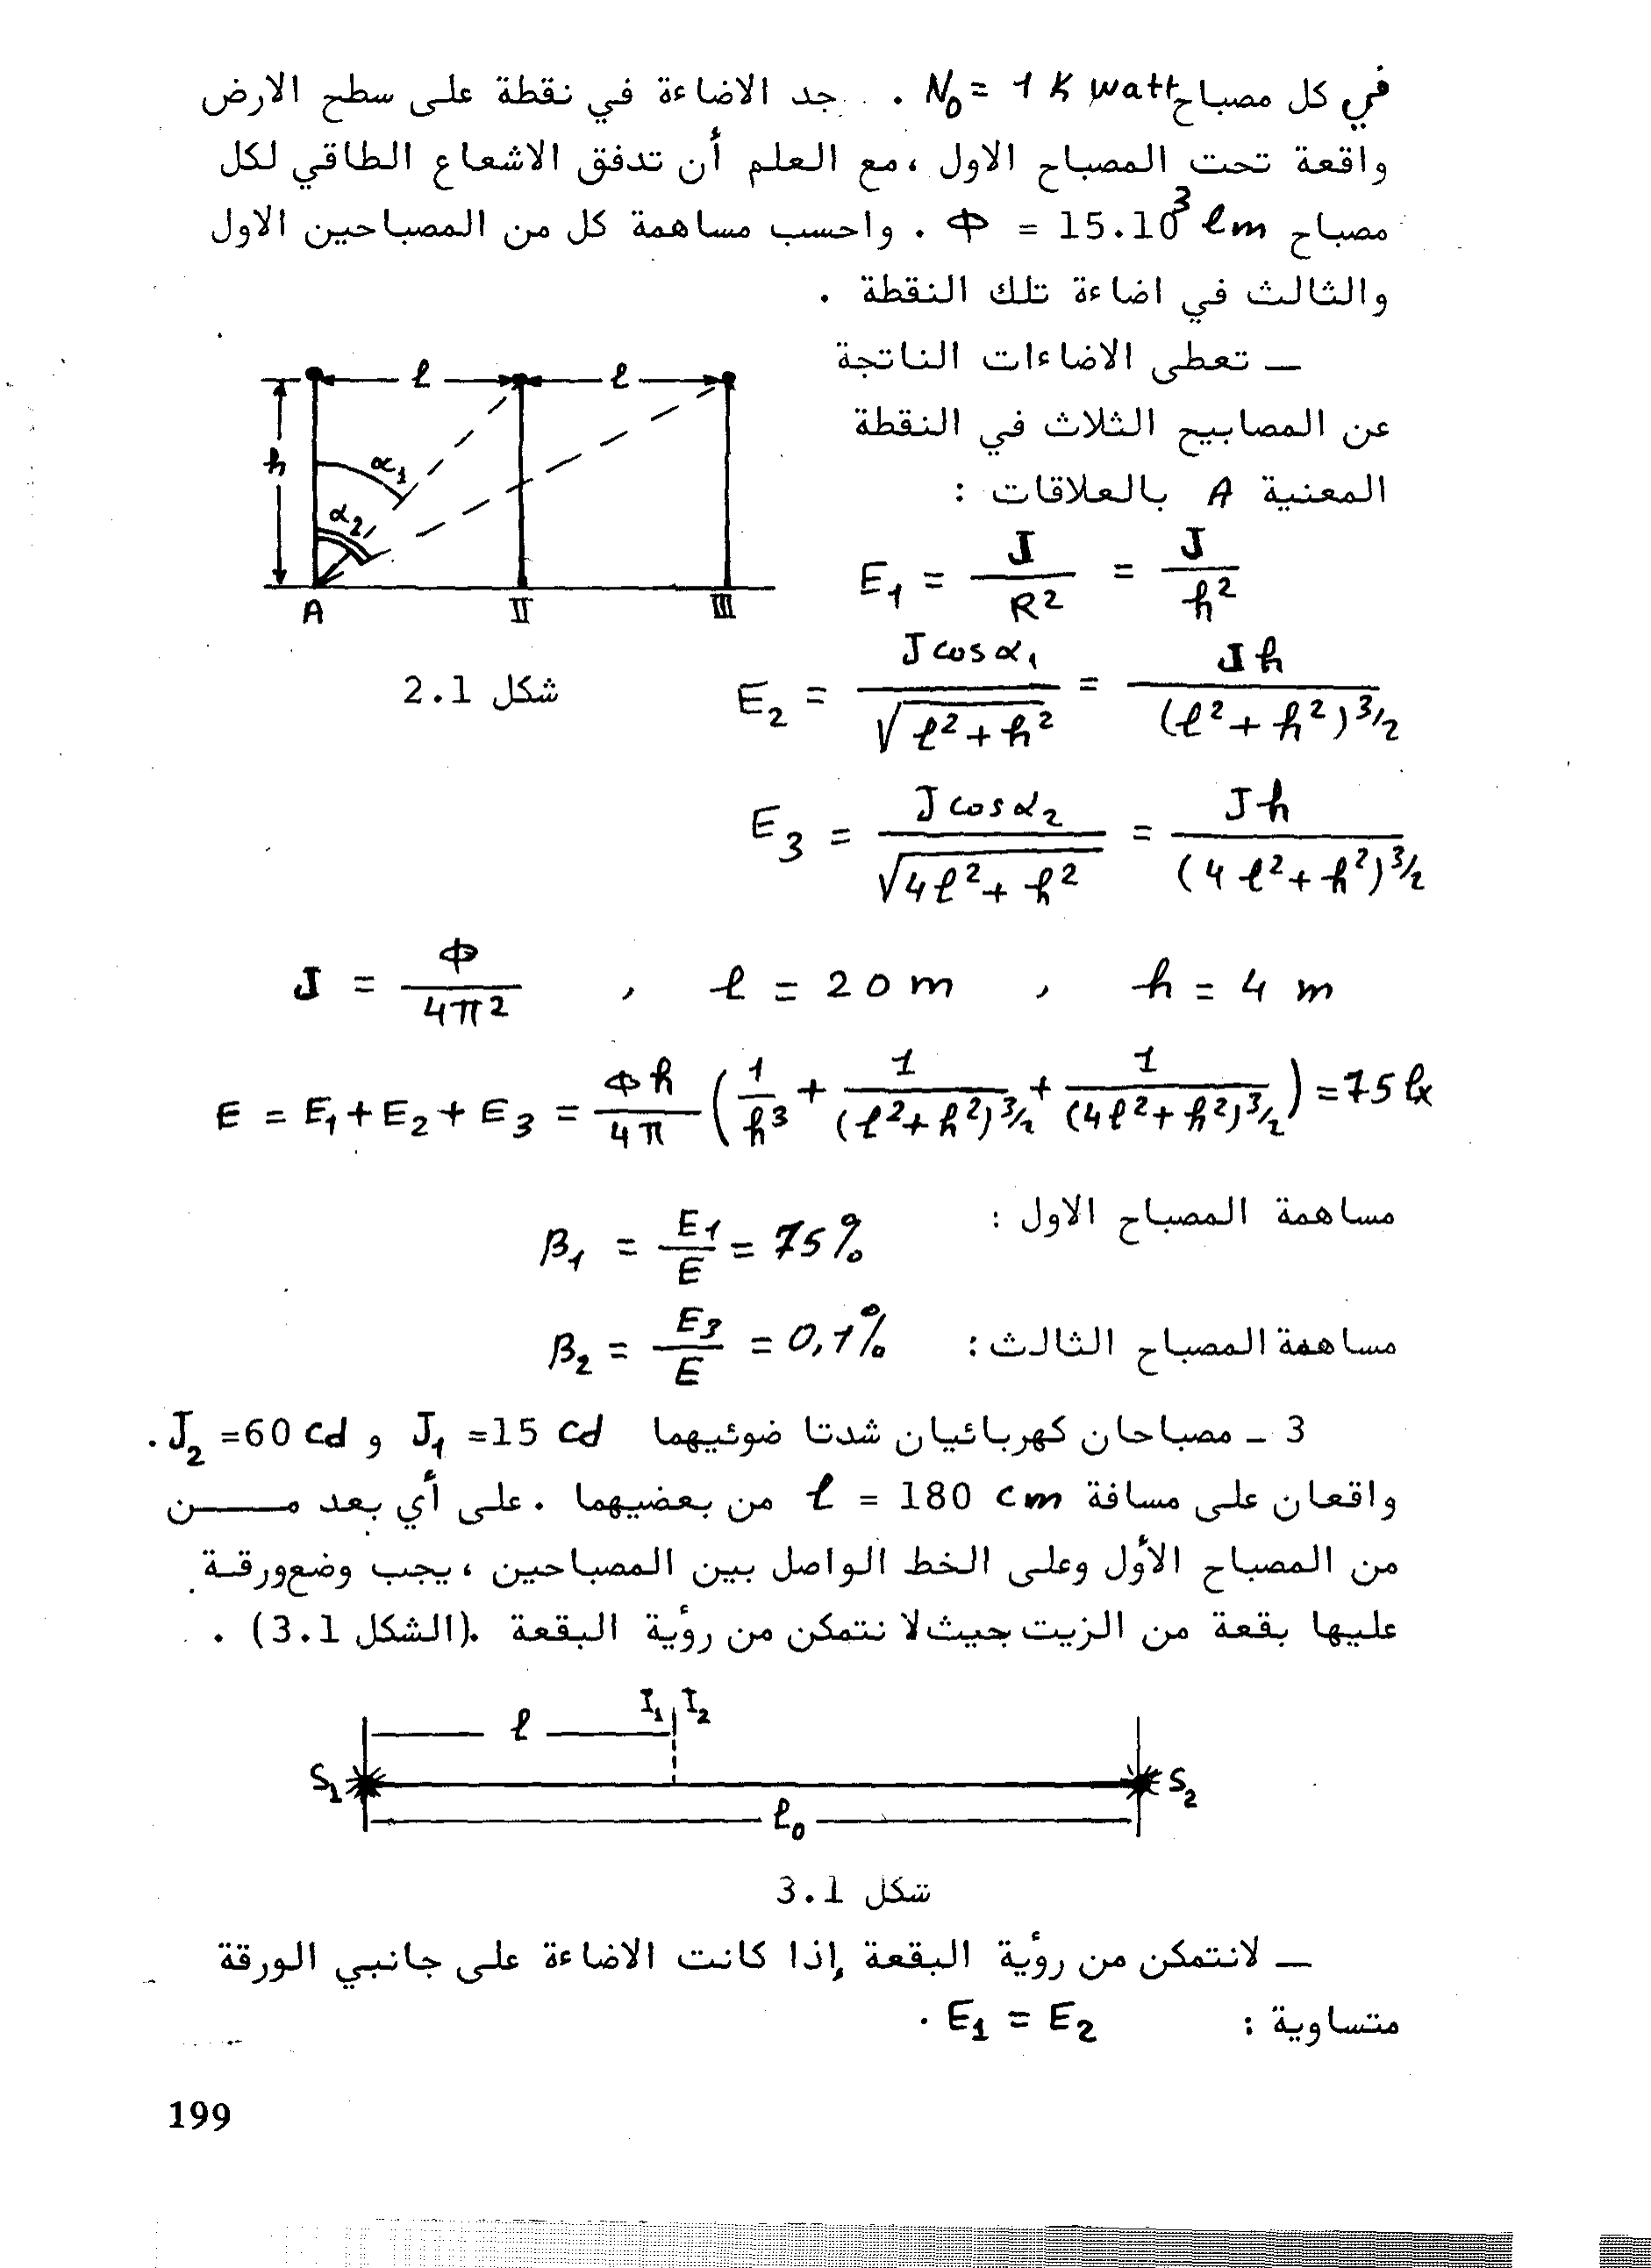 في كل مصباح N₀ = 1 K watt . جد الاضاءة في نقطة على سطح الارض
واقعة تحت المصباح الاول ، مع العلم أن تدفق الاشعاع الطاقي لكل
مصباح Φ = 15.10³ lm . واحسب مساهمة كل من المصباحين الاول
والثالث في اضاءة تلك النقطة .
— تعطى الاضاءات الناتجة
عن المصابيح الثلاث في النقطة
المعنية A بالعلاقات :
l l
h α₁ α₂
A II III
شكل 2.1
E₁ = J / R² = J / h²
E₂ = J cos α₁ / √(l² + h²) = J h / (l² + h²)^3/2
E₃ = J cos α₂ / √(4l² + h²) = J h / (4l² + h²)^3/2
J = Φ / 4π² , l = 20 m , h = 4 m
E = E₁ + E₂ + E₃ = Φh / 4π ( 1 / h³ + 1 / (l² + h²)^3/2 + 1 / (4l² + h²)^3/2 ) = 75 lx
مساهمة المصباح الاول : β₁ = E₁ / E = 75 %
مساهمة المصباح الثالث : β₂ = E₃ / E = 0,1 %
3 – مصباحان كهربائيان شدتا ضوئيهما J₁ = 15 cd و J₂ = 60 cd .
واقعان على مسافة l = 180 cm من بعضيهما . على أي بعد مــن
من المصباح الأول وعلى الخط الواصل بين المصباحين ، يجب وضع ورقة
عليها بقعة من الزيت جيث لا نتمكن من رؤية البقعة .(الشكل 3.1) .
l I₁ I₂
S₁ S₂
l₀
شكل 3.1
— لانتمكن من رؤية البقعة إذا كانت الاضاءة على جانبي الورقة
متساوية : E₁ = E₂ .
199